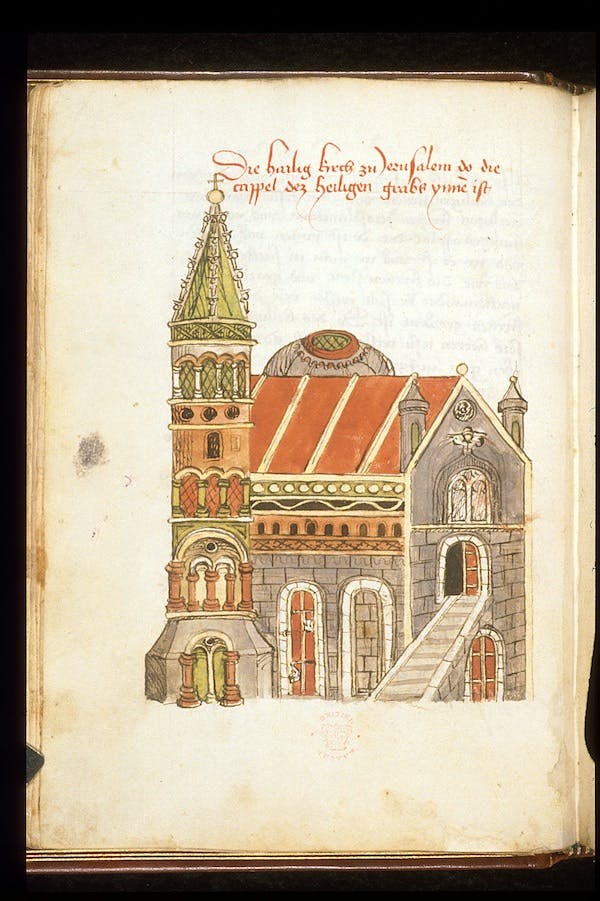 Die hailig kirch zu Jerusalem do die
cappel dez heiligen grabs ynne ist